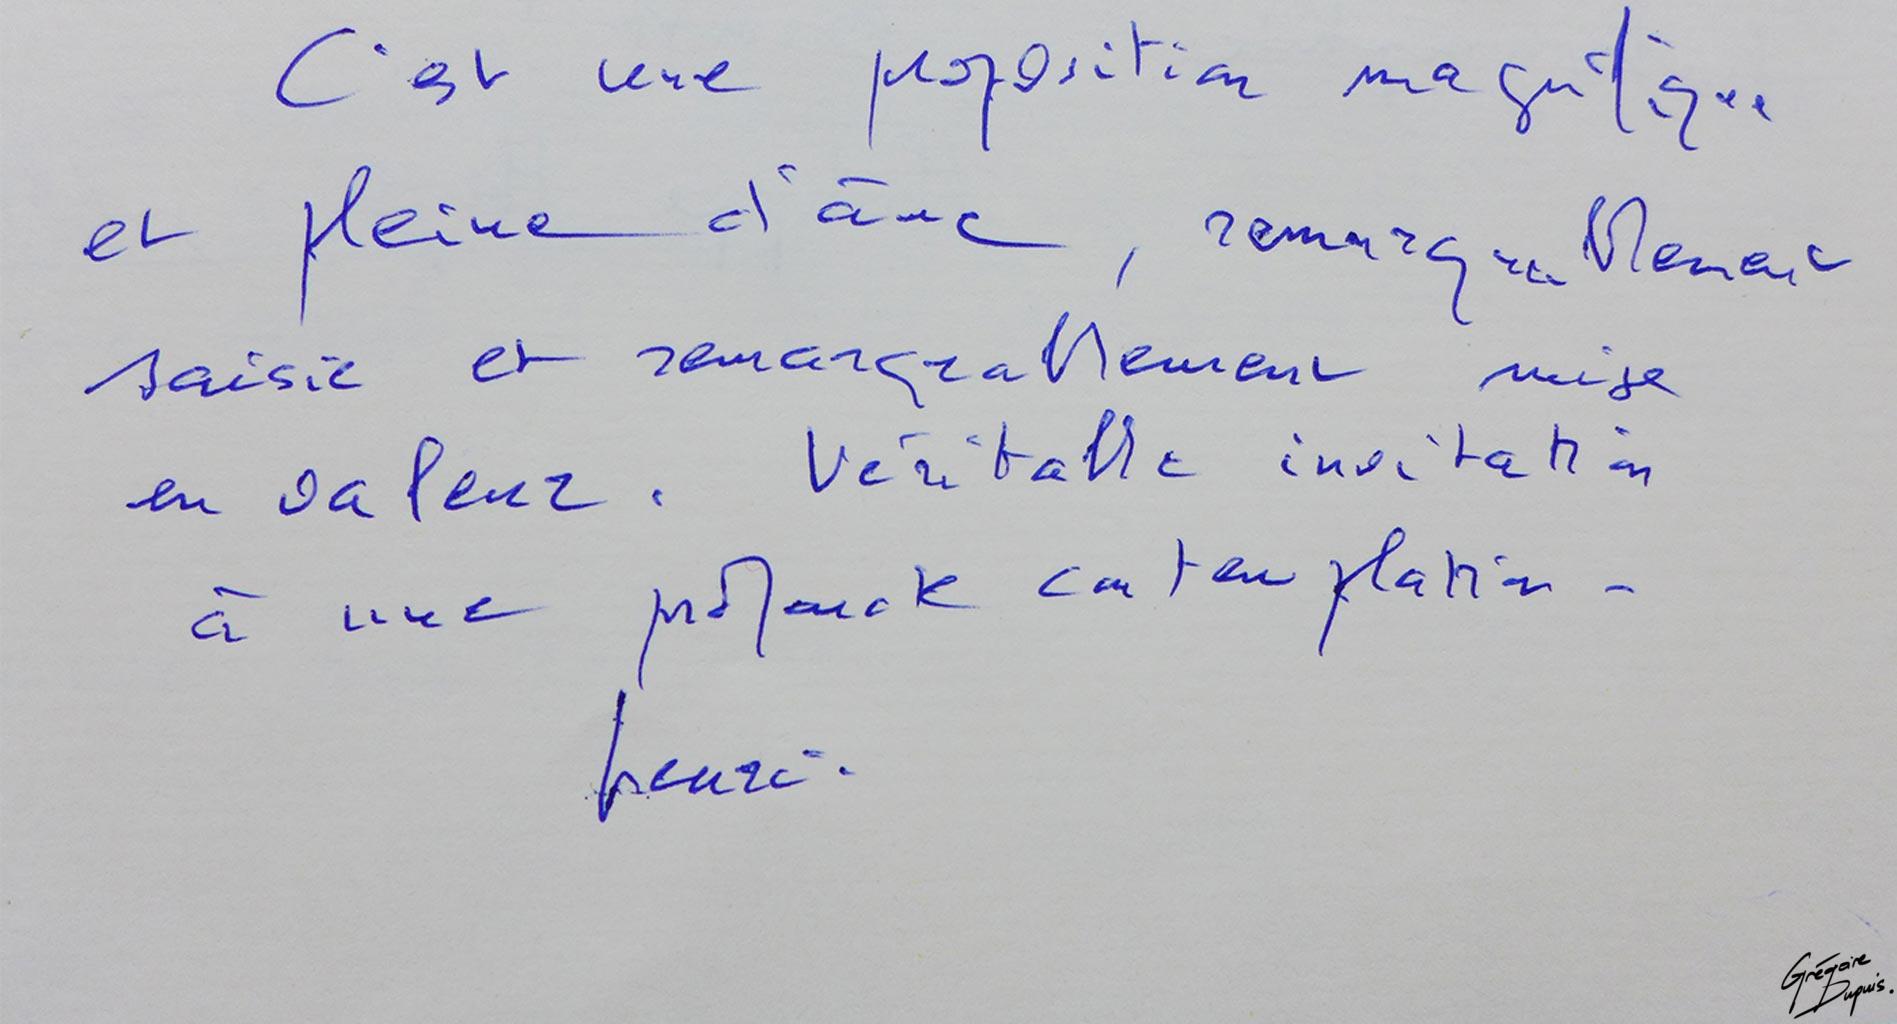 C'est une proposition magnifique
et pleine d'âme, remarquablement
saisie et remarquablement mise
en valeur. Véritable invitation
à une profonde contemplation -
henri.
Grégoire
Dupuis.